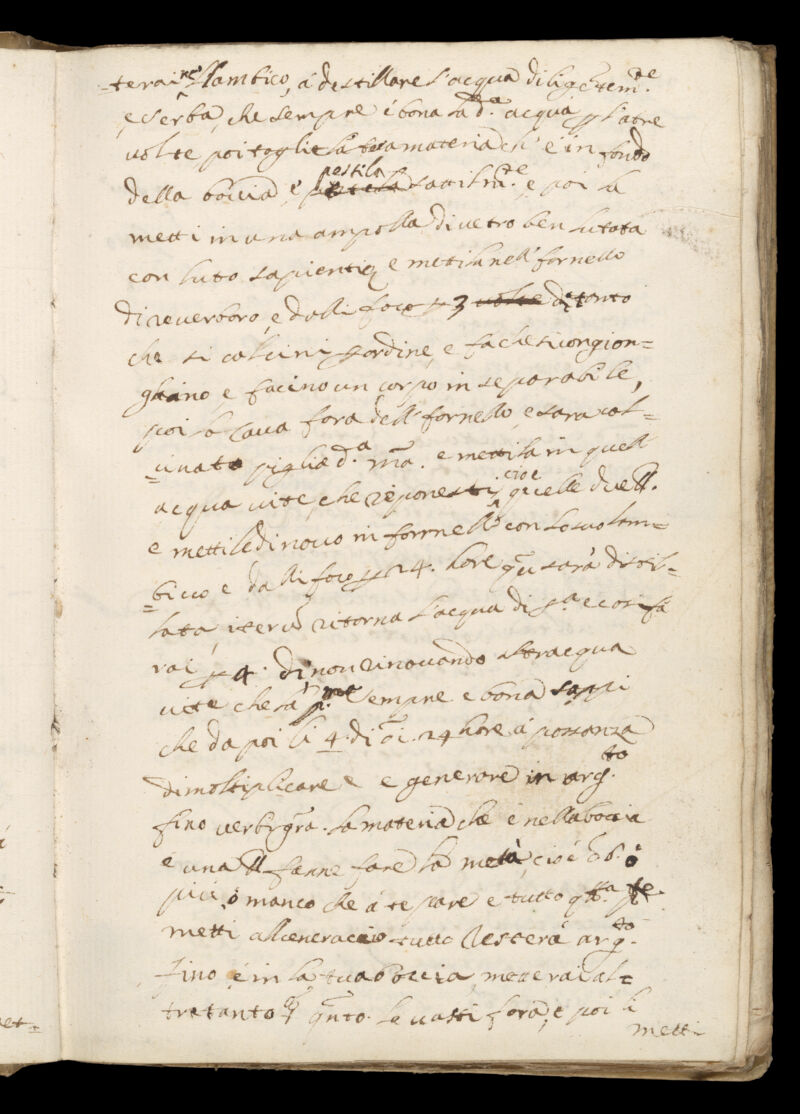 =terai nel lambico, á destillare l'acqua diligẽtem.te
e serba, che sempre é bona la d.a acqua p l'altre
volte, poi toglie la tera materia ch' é in fondo
della boccia é pestila sotilm.te, e poi la
metti in una ampolla di vetro ben lutata
con luto sapientię e mettila nell' fornello
di reverboro, e dalli foco p 3 volte di tanto
che si calcini p ordine, e fa che si congion=
ghino e facino un corpo inseparabile,
poi lo cava fora dell' fornello, e sara cal=
=cinato piglia d.a m.a e mettila in quell
acqua vite, che riponesti, cioe quelle due ll.
e mettile di novo in fornello con lo suo lam=
=bicco e dalli foco p 24. hore qñ sará distil=
lata, iterũ ritorna l'acqua di s.a e cosi fa
rai p 4. dì non rinovando altr acqua
vite che la p.ma sempre e bona sappi
che da poi li 4. di õi 24 hore á possanza
di moltiplicare e e generare in arg.to
fino verbi gr̃a. la materia che é nella boccia
é una ll fanne fare la metà, cioé õ 6. ó
piú, ó manco che á te pare e tutto q.ta
metti all ceneraccio tutto resterá arg.to
fino, é in la tua boccia metterai al=
tretanto qñto. la vasti fora, e poi li
metti